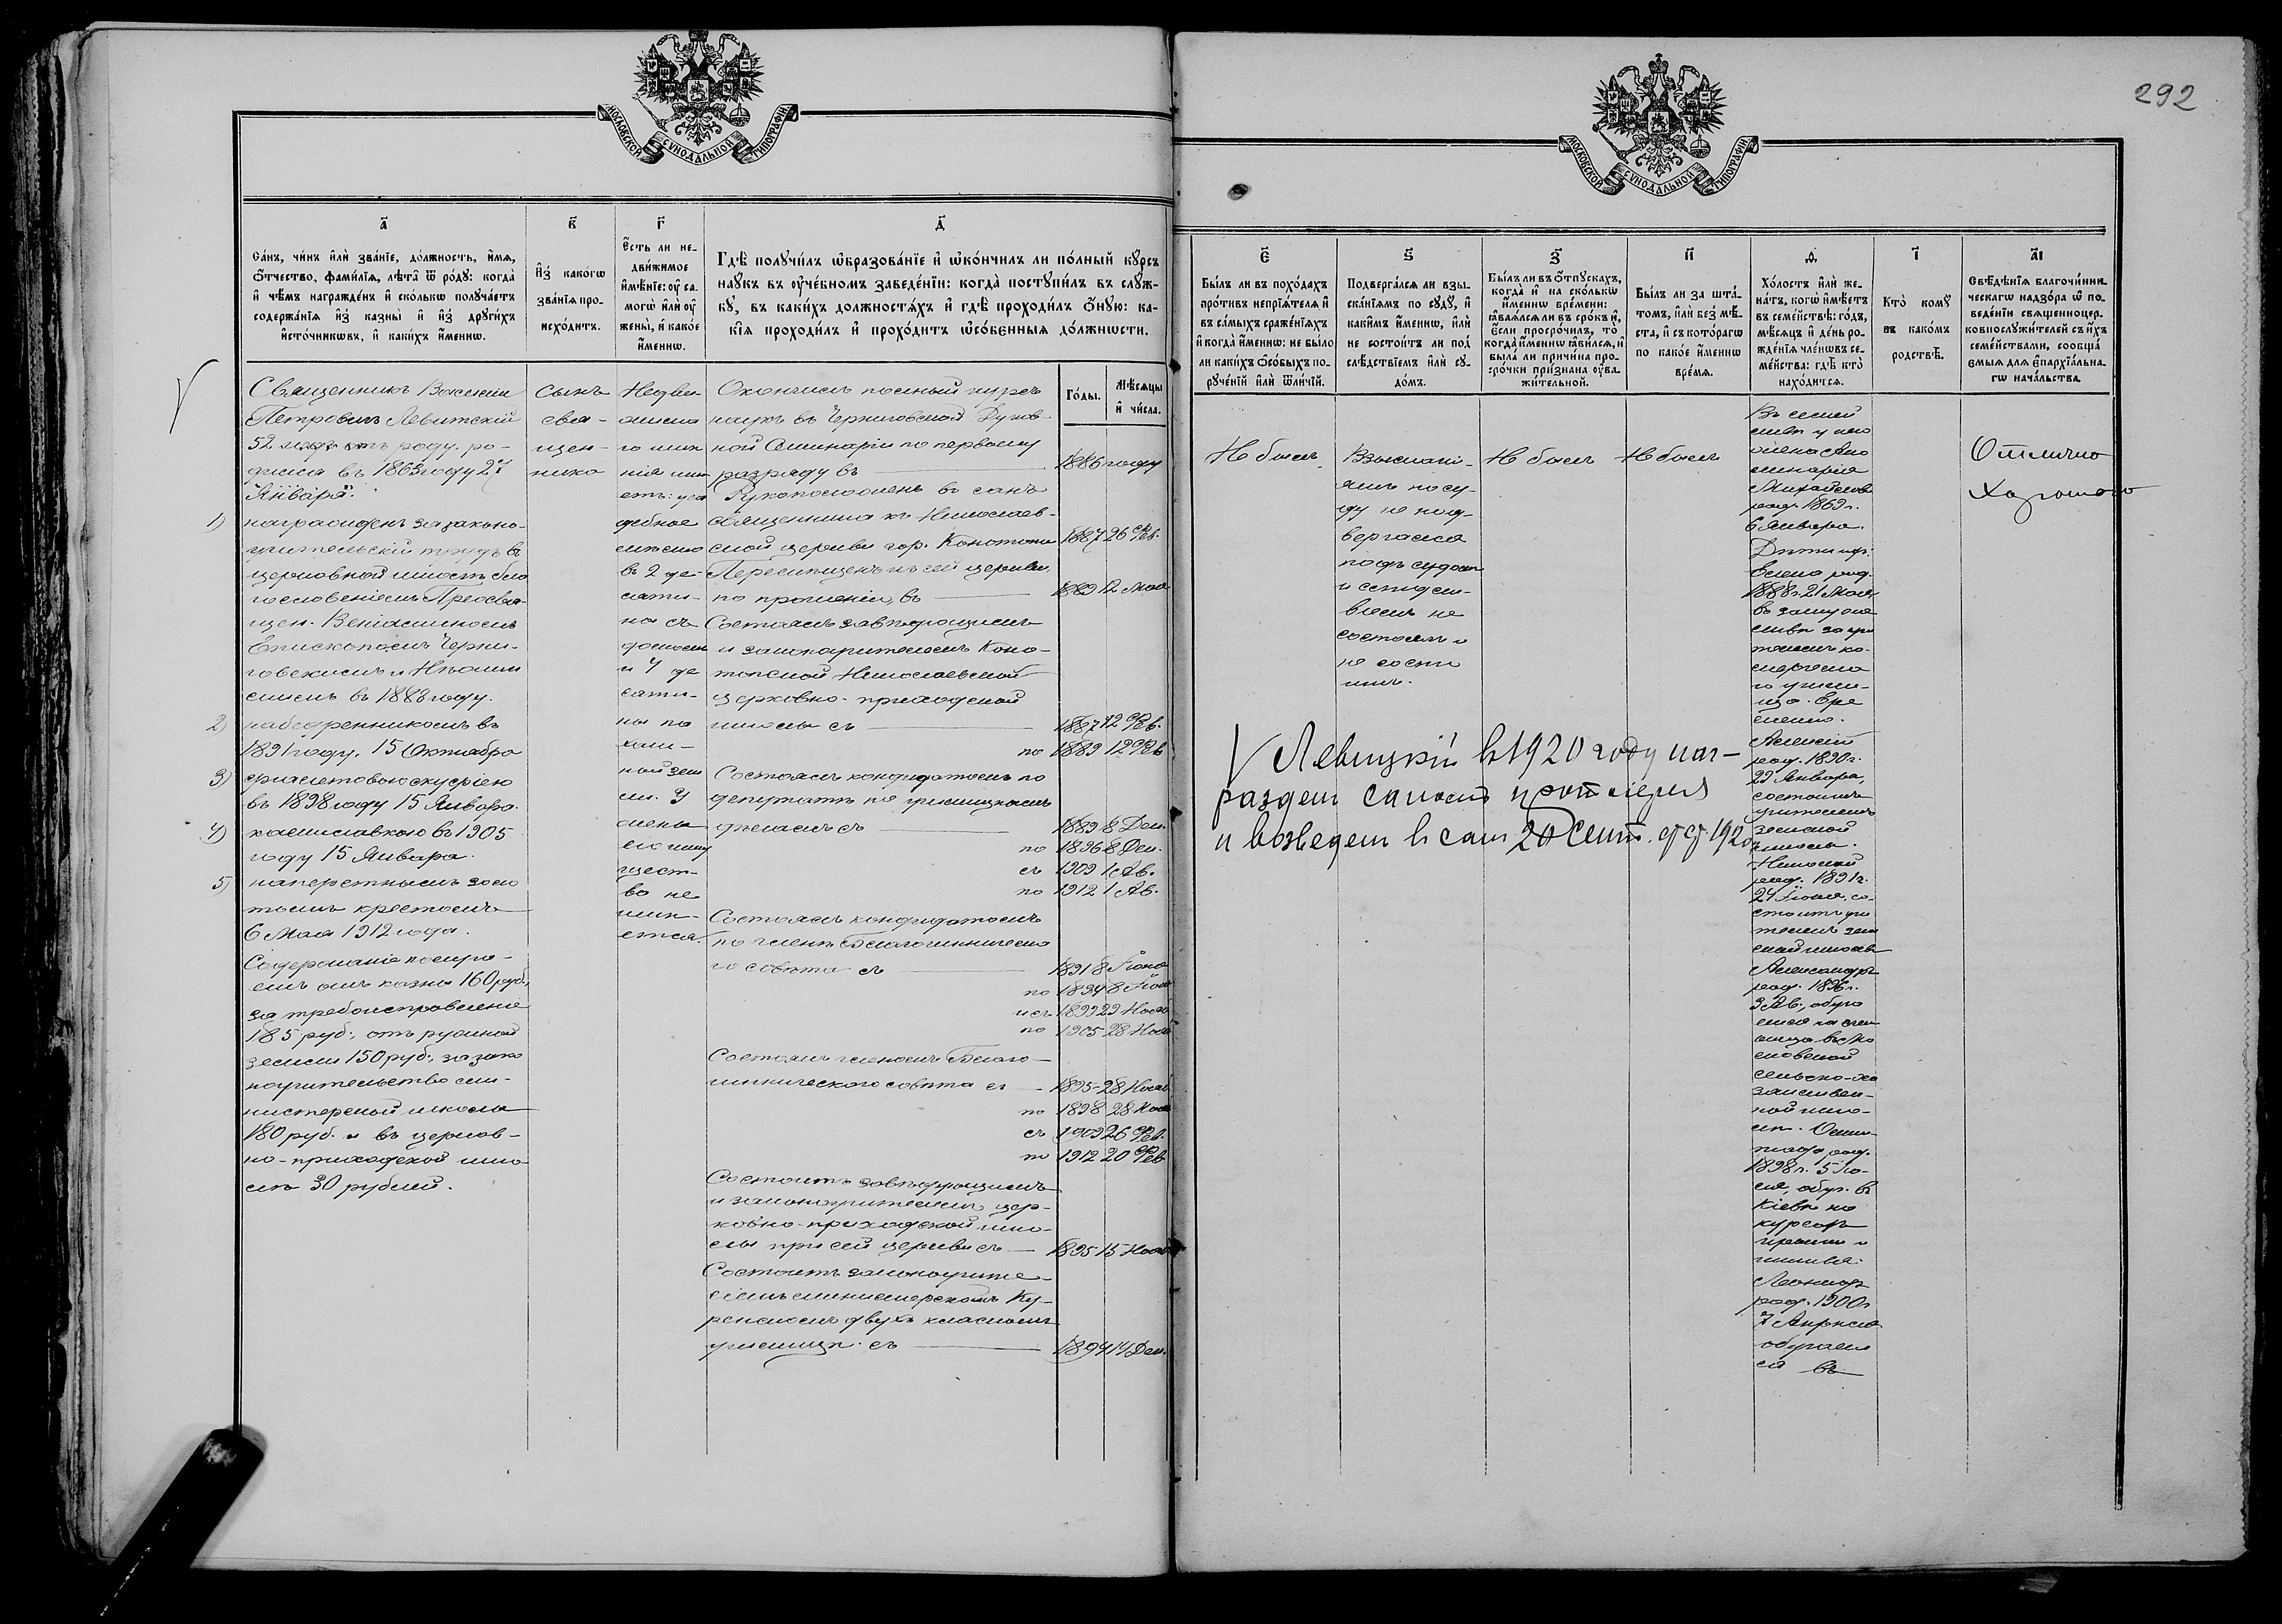 292
МОСКОВСКОЙ СѴНОДАЛЬНОЙ ТИПОГРАФІИ
МОСКОВСКОЙ СѴНОДАЛЬНОЙ ТИПОГРАФІИ
а҃
Са́нъ, чи́нъ и҆лѝ зва́нїе, до́лжность, и҆́мѧ,
ѻ҆́тчество, фами́лїѧ, лѣ́та ѿ ро́дꙋ: когда̀
и҆ чѣ́мъ награжде́нъ и҆ ско́лькѡ полꙋча́етъ
содержа́нїѧ и҆з̾ казны̀ и҆ и҆з̾ дрꙋги́хъ
и҆сто́чникѡвъ, и҆ каки́хъ и҆́меннѡ.
в҃
И҆з̾ како́гѡ
зва́нїѧ про-
исхо́дитъ.
г҃
Е҆́сть ли не-
дви́жимое
и҆мѣ́нїе: ᲂу҆ са-
могѡ̀ и҆лѝ ᲂу҆
жены̀, и҆ како́е
и҆́меннѡ.
д҃
Гдѣ̀ полꙋчи́лъ ѡ҆бразова́нїе и҆ ѡ҆ко́нчилъ ли по́лный кꙋ́рсъ
наꙋ́къ въ ᲂу҆че́бномъ заведе́нїи: когда̀ постꙋпи́лъ въ слꙋ́ж-
бꙋ, въ каки́хъ должностѧ́хъ и҆ гдѣ̀ проходи́лъ ѻ҆́нꙋю: ка-
кі̑ѧ проходи́лъ и҆ прохо́дитъ ѡ҆со́бєнныѧ до́лжнѡсти.
Го́ды.
Мѣ́сѧцы
и҆ чи́сла.
Священникъ
Петровичъ Левитскій
52 лѣтъ отъ роду, ро-
дился въ 1863 году 27
Января.
1) награжденъ за законо-
учительскій трудъ въ
церковной школѣ бла
гословеніемъ Преосвя-
щен. Веніаминомъ
Епископомъ Черни-
говскимъ и Нѣжин
скимъ въ 1888 году.
2) набедренникомъ въ
1891 году, 15 Октября
3) фіолетовою скуфіею
въ 1898 году 15 Января.
4) камилавкою въ 1905
году 15 Января.
5) наперстнымъ золо
тымъ крестомъ
6 Мая 1912 года.
Содержанія получа-
етъ отъ казны 160 руб.,
за требоисправленіе
185 руб., отъ ружной
земли 150 руб., за зако
ноучительство ми-
нистерской школы
180 руб. и въ церков-
но-приходской шко-
лѣ 30 рублей.
Сынъ
свя-
щен-
ника
Недви
жима
го имѣ
нія имѣ
етъ: уса
дебное
мѣсто
въ 2 де-
сяти-
на съ
домомъ
и 4 де
сяти-
ны па
хат-
ной зем
ли. У
жены
его иму
щест-
во не
имѣ-
ется.
Окончилъ полный курсъ
наукъ въ Черниговской Духов-
ной Семинаріи по первому
разряду въ 1886 году
Рукоположенъ въ санъ
священника къ Николаев-
ской церкви гор. Конотопа 1887 26 Фев.
Перемѣщенъ къ сей церкви,
по прошенію, въ 1889 12 Мая
Состоялъ завѣдующимъ
и законоучителемъ Коно-
топской Николаевской
церковно-приходской
школы съ 1887 12 Фев.
по 1889 12 Фев
Состоялъ кандидатомъ по
депутатѣ по училищнымъ
дѣламъ съ 1889 8 Дек.
по 1896 8 Дек.
съ 1909 1 Ав.
по 1912 1 Ав.
Состоялъ кандидатомъ
по членѣ Благочинническа
го совѣта съ 1891 8 Іюня
по 1894 8 Іюня
и съ 1899 29 Нояб
по 1905 28 Нояб
Состоялъ членомъ Благо-
чинническаго совѣта съ 1895 28 Нояб
по 1898 28 Нояб
съ 1909 26 Фев.
по 1912 20 Фев
Состоитъ завѣдующимъ
и законоучителемъ цер-
ковно-приходской шко-
лы при сей церкви съ 1895 15 Нояб
Состоитъ законоучите-
лемъ министерскомъ Ку-
ренскомъ двухъ класномъ
училищѣ съ 1894 14 Дек.
є҃
Бы́лъ ли въ похо́дахъ
про́тивъ непрїѧ́телѧ и҆
въ са́мыхъ сраже́нїѧхъ
и҆ когда̀ и҆́меннѡ: не бы́ло
ли каки́хъ ѻ҆со́быхъ по-
рꙋче́нїй и҆лѝ ѿли́чїй.
ѕ҃
Подверга́лсѧ ли взы-
ска́нїѧмъ по сꙋдꙋ̀, и҆
каки́мъ и҆́меннѡ, и҆лѝ
не состои́тъ ли под̾
слѣ́дствїемъ и҆лѝ сꙋ-
до́мъ.
з҃
Бы́лъ ли въ ѻ҆́тпꙋскахъ,
когда̀ и҆ на ско́лькѡ
и҆́меннѡ вре́мени:
ꙗ҆влѧ́лсѧ ли въ сро́къ и҆,
є҆́сли просро́чилъ, то̀
когда̀ и҆́меннѡ ꙗ҆ви́лсѧ, и҆
была́ ли причи́на про-
сро́чки при́знана ᲂу҆ва-
жи́тельной.
и҃
Бы́лъ ли за шта́-
томъ, и҆лѝ без̾ мѣ́-
ста, и҆ съ кото́рагѡ
по како́е и҆́меннѡ
вре́мѧ.
ѳ҃
Хо́лостъ и҆лѝ же-
на́тъ, когѡ̀ и҆мѣ́етъ
въ семе́йствѣ: го́дъ,
мѣ́сѧцъ и҆ де́нь ро-
жде́нїѧ чле́нѡвъ се-
ме́йства: гдѣ̀ кто̀
нахо́дитсѧ.
і҃
Кто̀ комꙋ̀
въ како́мъ
родствѣ̀.
аі҃
Свѣ́дѣнїѧ благочи́нни-
ческагѡ надзо́ра ѡ҆ по-
веде́нїи свѧщенноцер-
ковнослꙋжи́телей съ и҆́хъ
семе́йствами, сообща́-
ємыѧ длѧ є҆парх
їа́льна-
гѡ нача́льства.
Не былъ
Взыскані-
ямъ по су-
ду не под-
вергался
подъ судом
и слѣдст-
віемъ не
состоялъ и
не состо
итъ.
Не былъ
Не былъ
Въ семей
ствѣ у него
жена
Михайлова
род. 1869 г.
6 Января.
Дѣти их:
Елена род.
1888 г. 21 Мая,
въ замуже
ствѣ за учи
телемъ
Алексій
род. 1890 г.
29 Января,
состоитъ
учителемъ
земской
школы.
Николай
род. 1891 г.
24 Іюня, со-
стоитъ учи
телемъ зем
ской школы
Александръ
род. 1896 г.
9 Ав.,
сельско-хо
зяйствен-
ной шко-
лѣ.
род.
1898 г. 5 Ію-
ля, обуч. въ
Кіевѣ на
курсахъ
кройки и
шитья.
Леонидъ
род. 1900 г.
7 Апрѣля
обучает
ся въ
Отлично
Хорошаго
V Левицкій в 1920 году наг-
ражден саном протоіерея
и возведен в сан 20 Сент. 1920